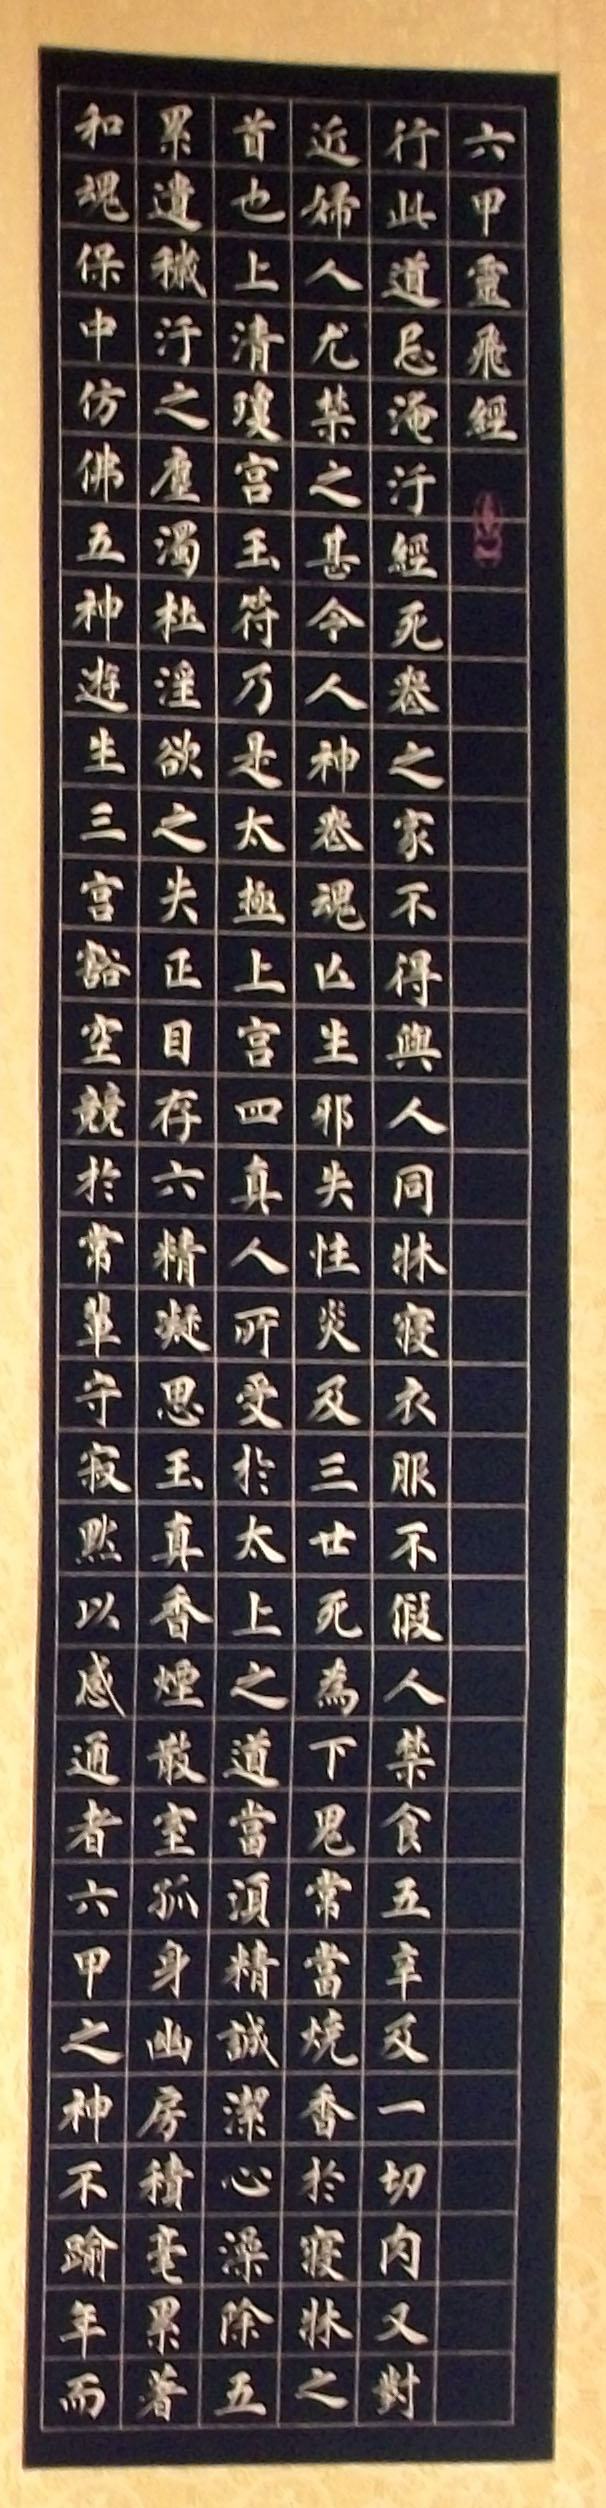 六甲靈飛經
行此道忌淹汙經死喪之家不得與人同牀寢衣服不假人禁食五辛及一切肉又對
近婦人尤禁之甚令人神喪魂亡生邪失性災及三世死為下鬼常當燒香於寢牀之
首也上清瓊宮玉符乃是太極上宮四真人所受於太上之道當須精誠潔心澡除五
累遺穢汙之塵濁杜淫欲之失正目存六精凝思玉真香煙散室孤身幽房積毫累著
和魂保中仿佛五神遊生三宮豁空競於常輩守寂默以感通者六甲之神不踰年而